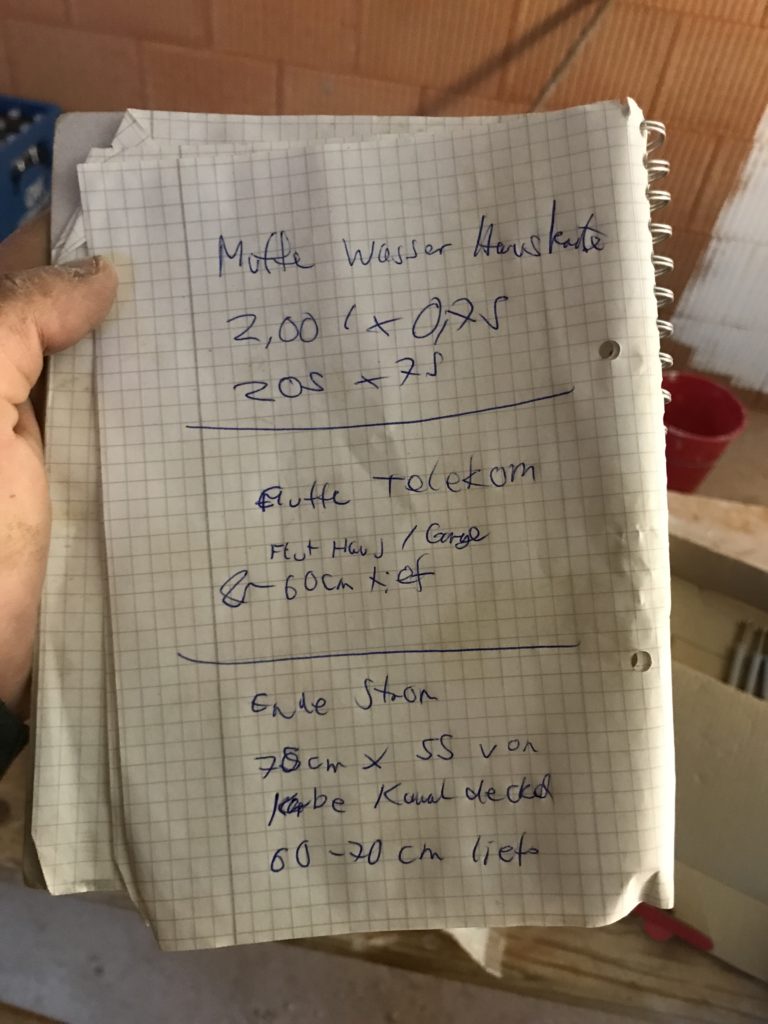 Muffe Wasser Hauskante
2,00 x 0,75
205 x 75
Muffe Telekom
Flut Haus / Garage
60cm tief
Ende Strom
78cm x 55 von
Kanaldeckel
60-70 cm tief